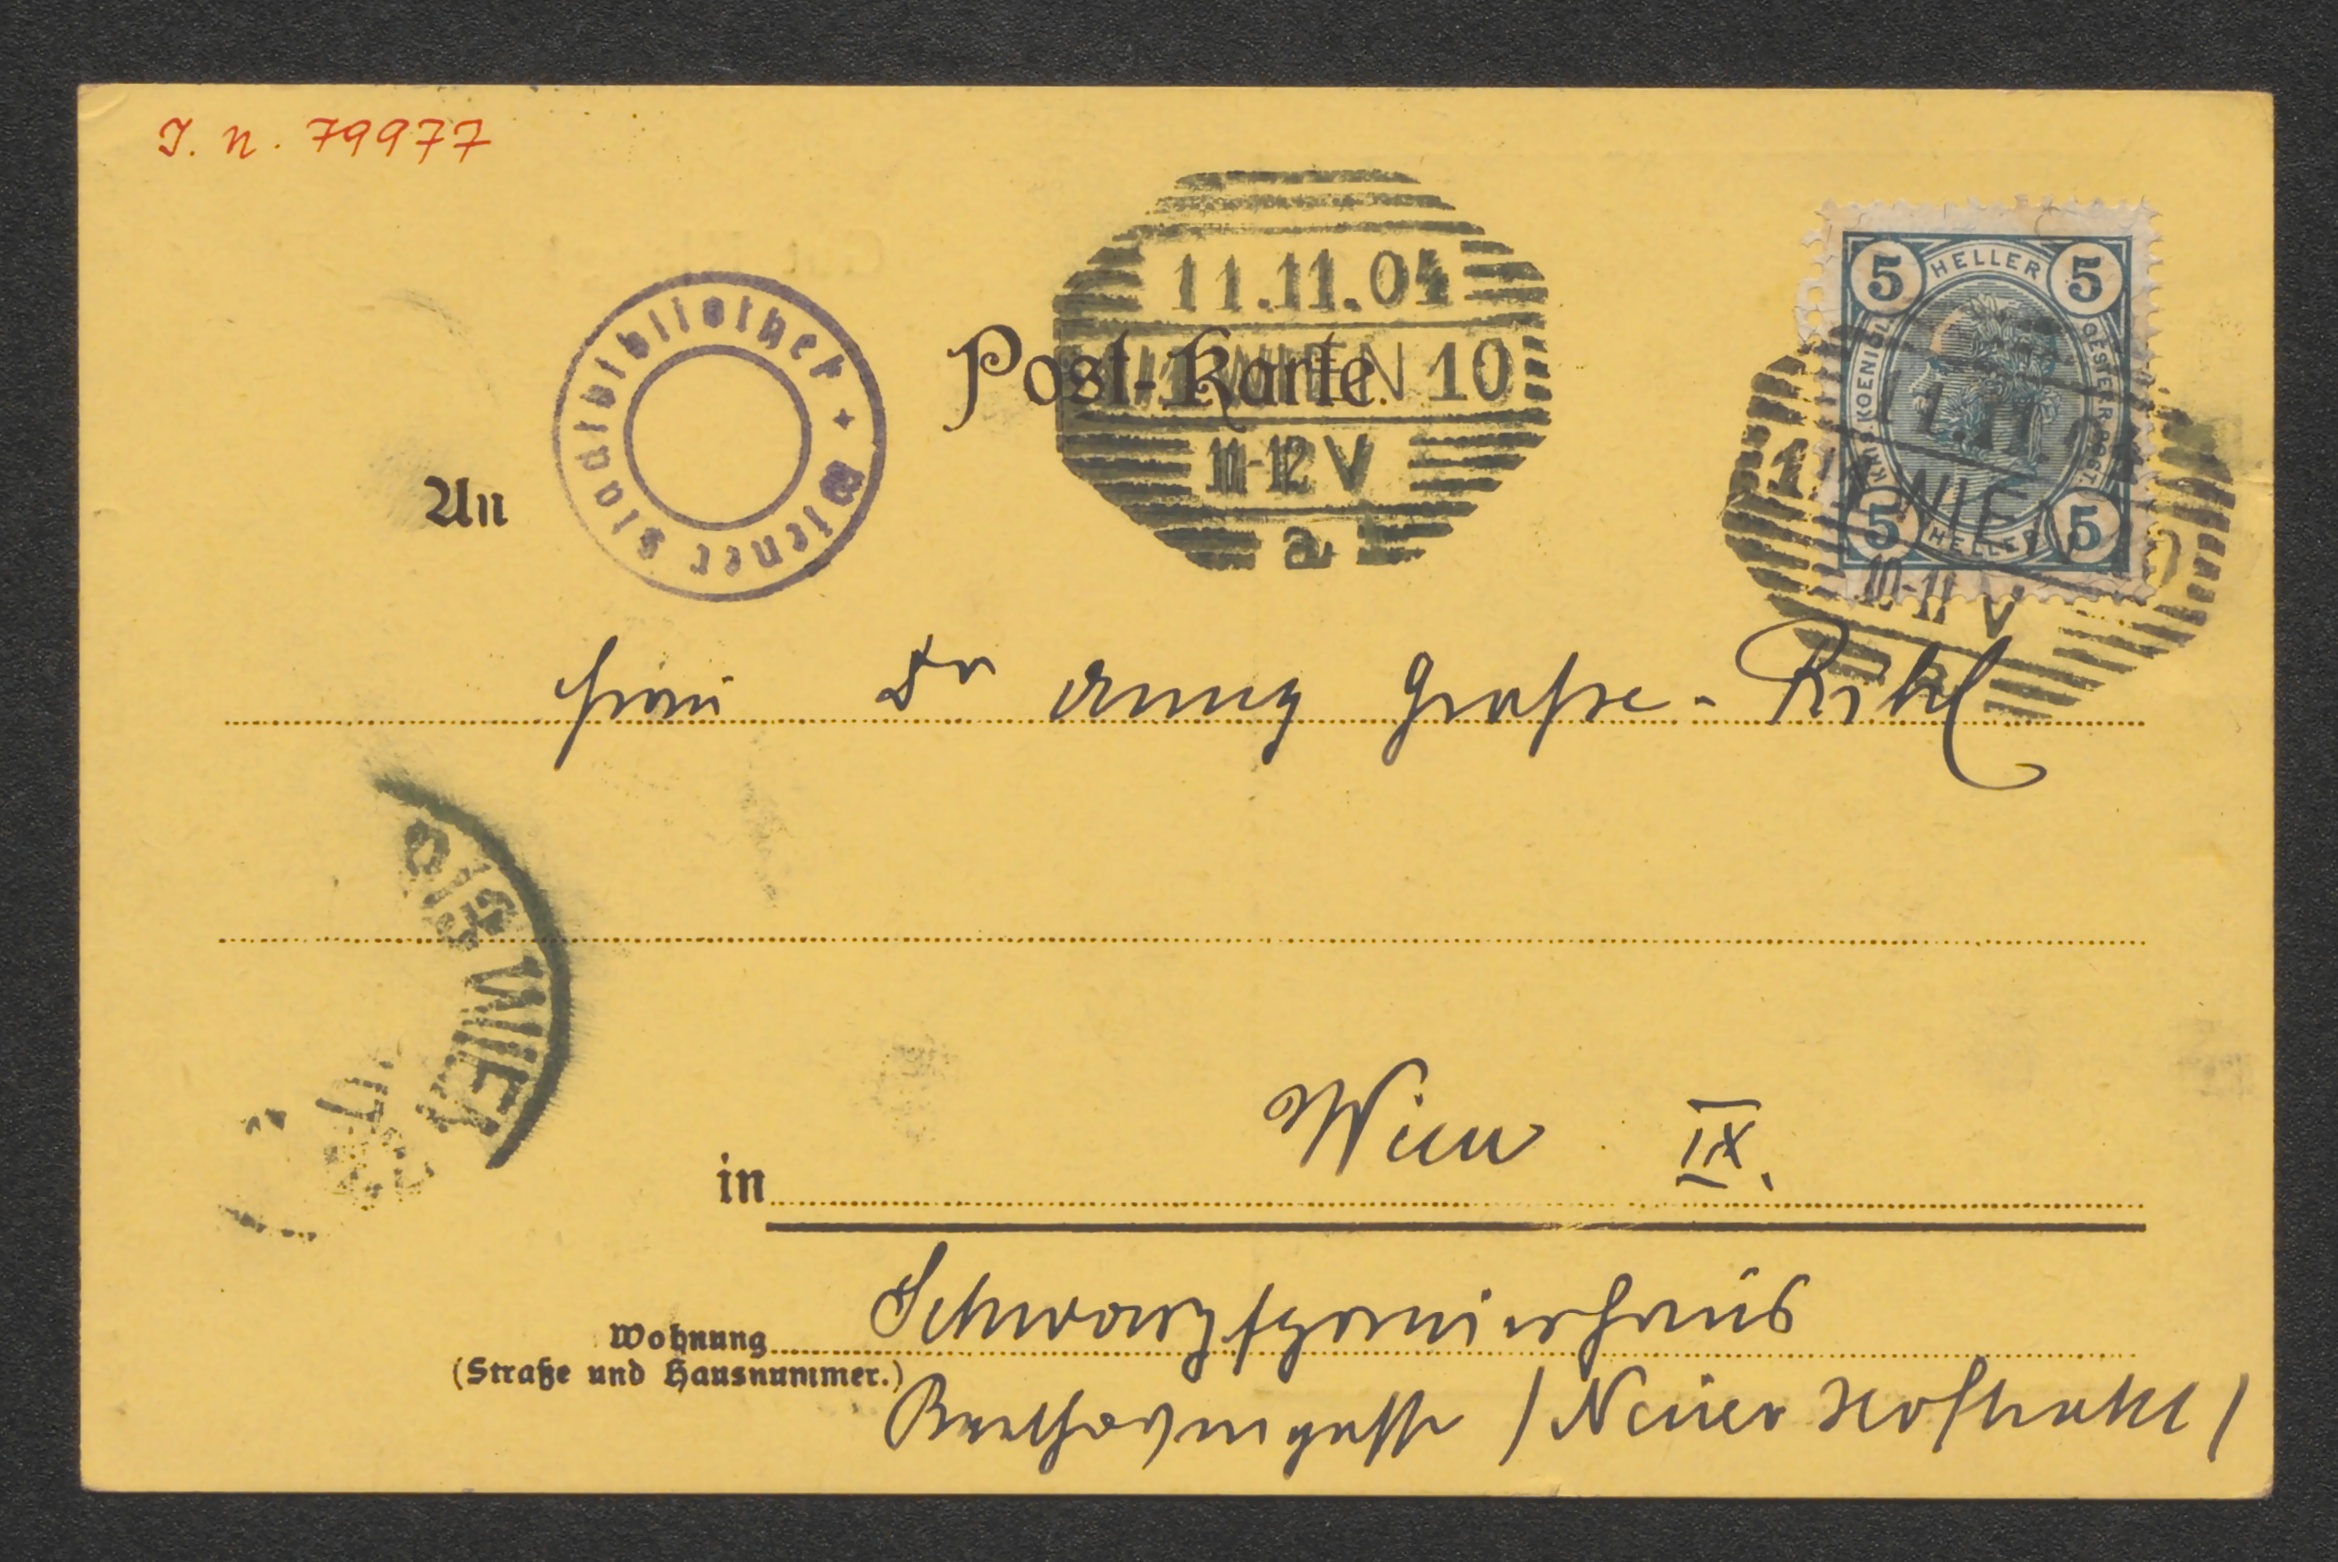 J. N. 79977
Wiener Stadtbibliothek
Post-Karte.
11.11.04
WIEN 10
11-12 V
a
5 HELLER 5
KAIS. KOENIGL.
OESTERR. POST.
5 HELLER 5
11.11.04
WIEN
10-11 V
An
Frau Dr Anny Grosse-Rikl
WIEN
in Wien IX.
Wohnung Schwarzspanierhaus
(Straße und Hausnummer.)
Beethovengasse / Neuer Hoftrakt /